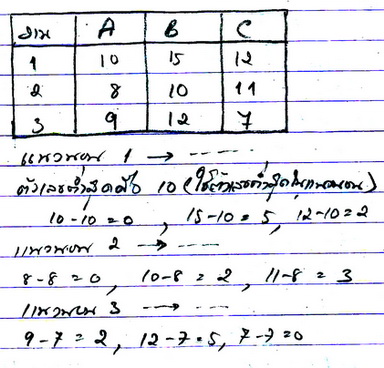 งาน A B C
1 10 15 12
2 8 10 11
3 9 12 7
แนวนอน 1 → -----
ตัวเลขต่ำสุดคือ 10 (ใช้ตัวเลขต่ำสุดในแนวนอน)
10-10=0 , 15-10=5, 12-10=2
แนวนอน 2 → ----
8-8=0, 10-8=2, 11-8=3
แนวนอน 3 → ---
9-7=2, 12-7=5, 7-7=0